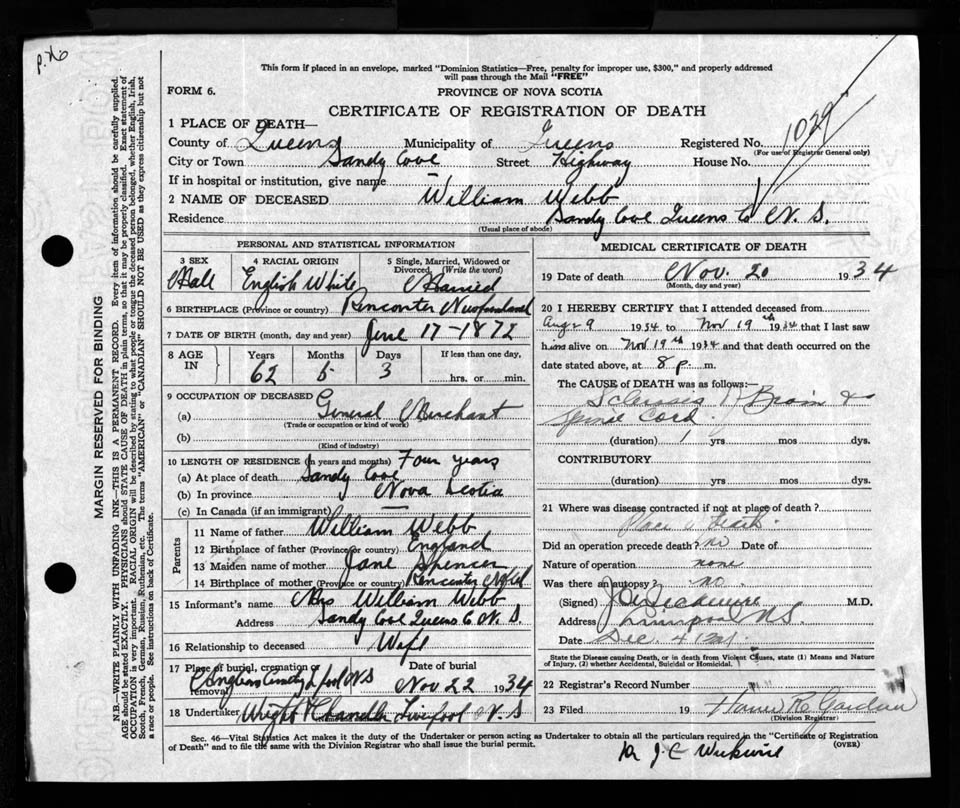 This form if placed in an envelope, marked "Dominion Statistics—Free, penalty for improper use, $300," and properly addressed
will pass through the Mail "FREE"
FORM 6.
PROVINCE OF NOVA SCOTIA
CERTIFICATE OF REGISTRATION OF DEATH
1 PLACE OF DEATH—
County of Queens Municipality of Queens Registered No. 1029
(For use of Registrar General only)
City or Town Sandy Cove Street Highway House No.
If in hospital or institution, give name
2 NAME OF DECEASED William Webb
Residence Sandy Cove Queens Co N. S.
(Usual place of abode)
PERSONAL AND STATISTICAL INFORMATION
3 SEX
4 RACIAL ORIGIN
5 Single, Married, Widowed or
Divorced. (Write the word)
English White
Married
6 BIRTHPLACE (Province or country) Rencontre Newfoundland
7 DATE OF BIRTH (month, day and year) June 17-1872
8 AGE IN
Years Months Days If less than one day,
62 5 3 hrs. or min.
9 OCCUPATION OF DECEASED
(a) General Merchant
(Trade or occupation or kind of work)
(b)
(Kind of industry)
10 LENGTH OF RESIDENCE (in years and months) Four years
(a) At place of death Sandy Cove
(b) In province Nova Scotia
(c) In Canada (if an immigrant)
Parents
11 Name of father William Webb
12 Birthplace of father (Province or country) England
13 Maiden name of mother Jane Spencer
14 Birthplace of mother (Province or country) Rencontre Nfld
15 Informant's name Mrs William Webb
Address Sandy Cove Queens Co N. S.
16 Relationship to deceased Wife
17 Place of burial, cremation or
removal
Date of burial
Nov 22 1934
18 Undertaker Wright Chandler Liverpool N. S
MEDICAL CERTIFICATE OF DEATH
19 Date of death Nov. 20 1934
(Month, day and year)
20 I HEREBY CERTIFY that I attended deceased from
Aug 29 1934 to Nov 19th 1934 that I last saw
him alive on Nov 19th 1934 and that death occurred on the
date stated above, at 8 p. m.
The CAUSE of DEATH was as follows:—
Sclerosis of Brain &
Cord.
(duration) 1 yrs mos dys.
CONTRIBUTORY
(duration) yrs mos dys.
21 Where was disease contracted if not at place of death?
Place of Death.
Did an operation precede death? no Date of
Nature of operation none
Was there an autopsy? no.
(Signed) M.D.
Address Liverpool N.S.
Date Dec. 4
State the Disease causing Death, or in death from Violent Causes, state (1) Means and Nature
of Injury, (2) whether Accidental, Suicidal or Homicidal.
22 Registrar's Record Number
23 Filed 19
(Division Registrar)
Sec. 46—Vital Statistics Act makes it the duty of the Undertaker or person acting as Undertaker to obtain all the particulars required in the "Certificate of Registration
of Death" and to file the same with the Division Registrar who shall issue the burial permit. (OVER)
MARGIN RESERVED FOR BINDING
N.B.—WRITE PLAINLY WITH UNFADING INK—THIS IS A PERMANENT RECORD. Every item of information should be carefully supplied.
AGE should be stated EXACTLY. PHYSICIANS should STATE CAUSE OF DEATH in plain terms, so that it may be properly classified. Exact statement of
OCCUPATION is very important. RACIAL ORIGIN will be described by stating to what people or tongue the deceased person belonged, whether English, Irish,
Scotch, French, German, Russian, Ruthenian, etc. The terms "AMERICAN" or "CANADIAN" SHOULD NOT BE USED as they express citizenship but not
a race or people. See instructions on back of Certificate.